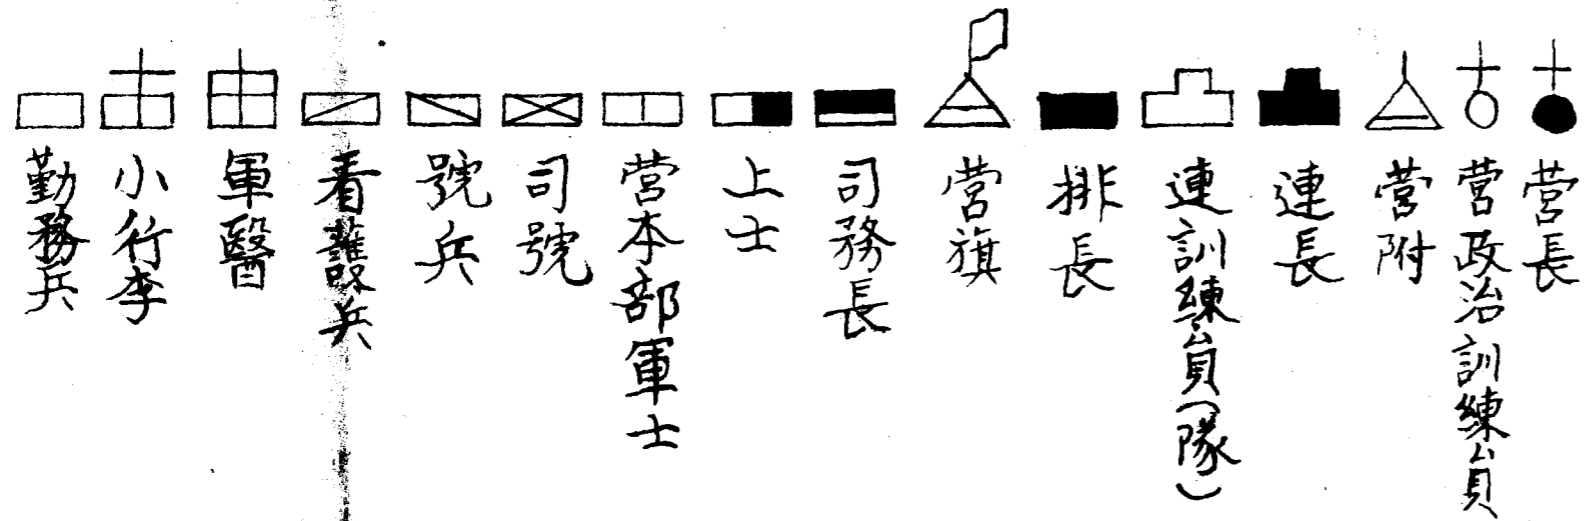 营長
营政治訓練員
营附
連長
連訓練員(隊)
排長
营旗
司務長
上士
营本部軍士
司號
號兵
看護兵
軍醫
小行李
勤務兵